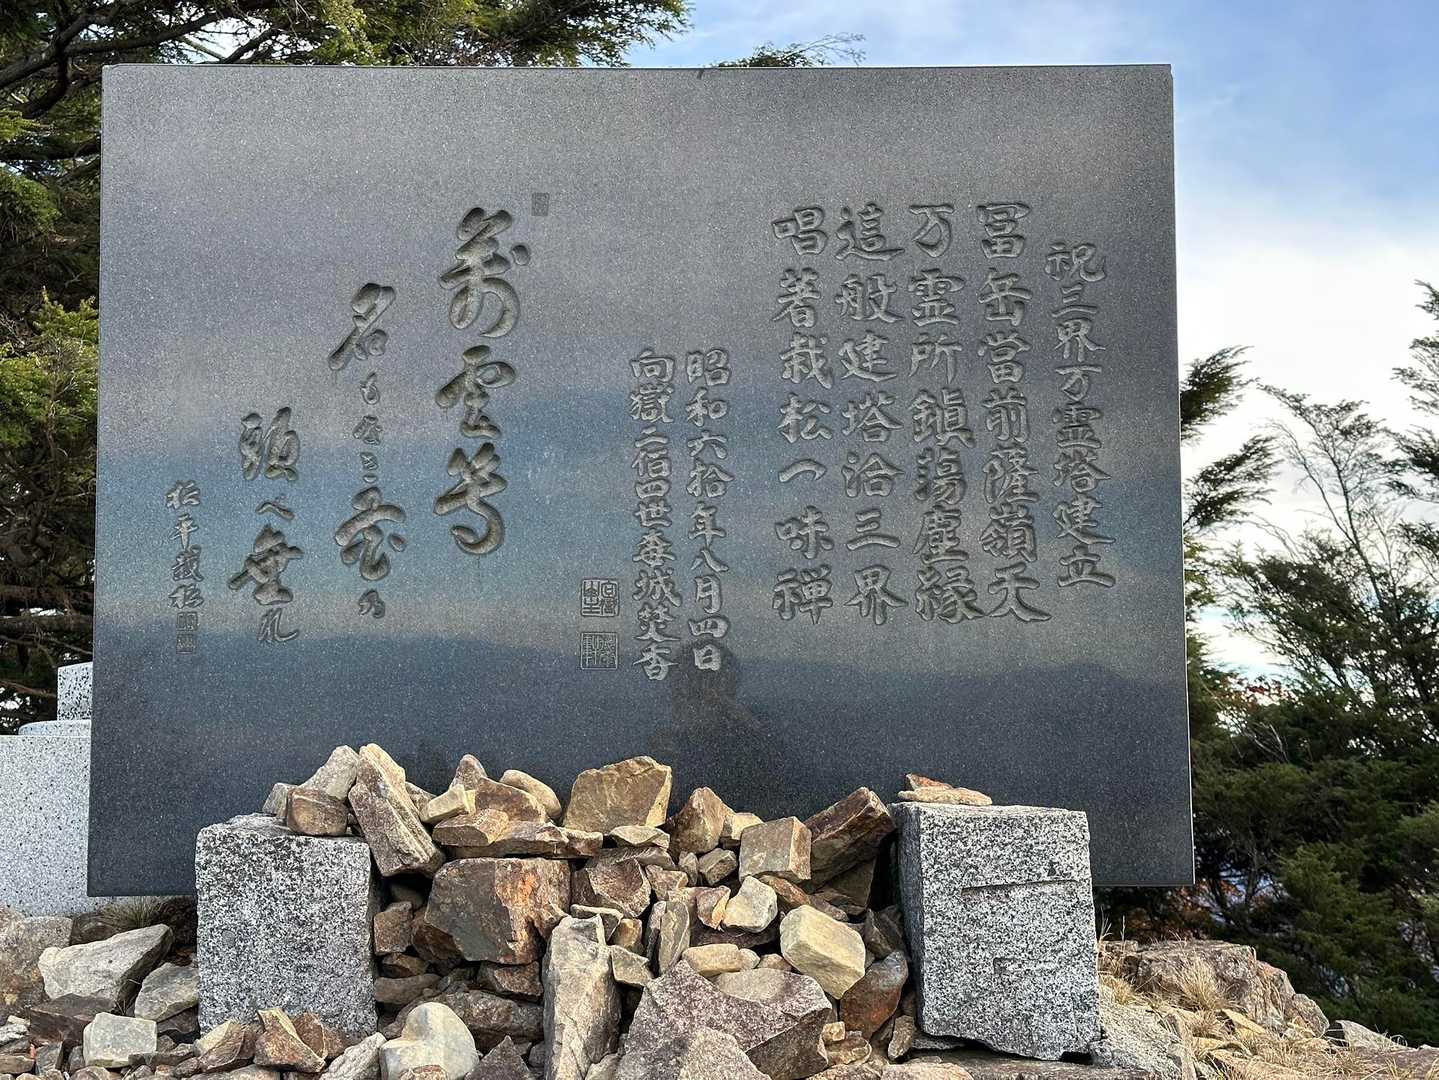 祝三界万霊塔建立
冨岳當前薩嶺天
万霊所鎮蕩塵縁
這般建塔洽三界
唱著栽松一味禅
昭和六拾年八月四日
向嶽二佰四世毒城焚香
萬霊等
名もなき花の
頭へ垂れ